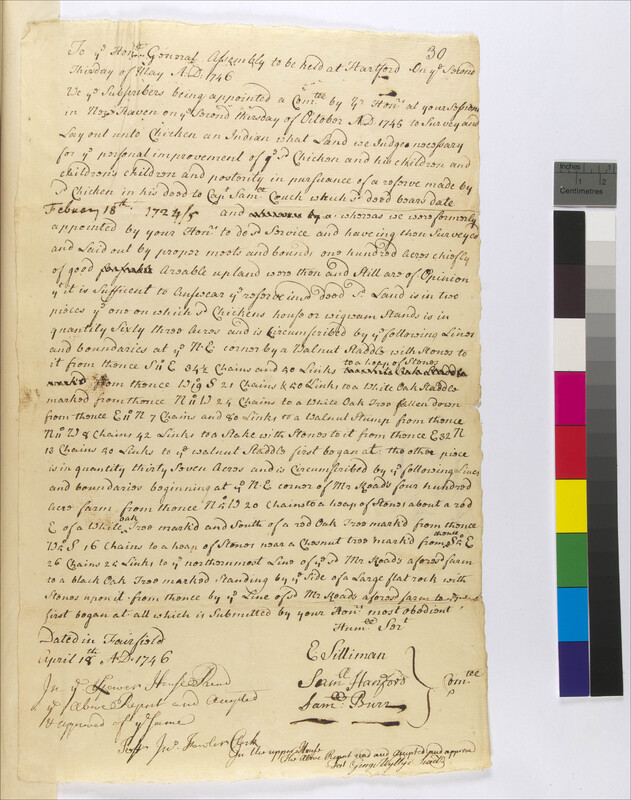 30
To ye Honble General Assembly to be held at Hartford On ye Second
Thirsday of May A:D: 1746
We ye Subscribers being appointed a Comtee by yr Honrs at your Sessions
in New Haven on ye Second thirsday of October A:D. 1745 to Survey and
Lay out unto Chicken an Indian what Land we Judge necessary
for ye personal improvement of ye sd Chicken and his children and
childrens children and postority in pursuance of a reserve made by
sd Chicken in his deed to Capt Samll Couch which sd deed bears date
Febuery 18th 1724/5 and whereas we were formerly
appointed by your Honrs to do sd Service and haveing then Surveyed
and Laid out by proper meets and bounds one hundred Acres chiefly
of good Areable upland were then and Still are of Opinion
yt it is Suffecent to Answear ye reserve in sd deed sd Land is in two
pieces ye one on which sd Chickens house or wigwam Stands is in
quantity Sixty three Acres and is Circumscribed by ye following Lines
and boundaries at ye N:E corner by a Walnut Staddle with Stones to
it from thence E 34½ Chains and 40 Links to a heap of Stones
from thence S 21 Chains & 20 Links to a White Oak Staddle
marked from thence W 24 Chains to a White Oak Tree fallen down
from thence E N 7 Chains and 80 Links to a Walnut Stump from thence
W 8 Chains 42 Links to a Stake with Stones to it from thence E 32 N
13 Chains 40 Links to ye walnut Staddle first began at the other piece
is in quantity thirty Seven Acres and is Circumscribed by ye following Lines
and boundaries beginning at ye N:E corner of Mr Reads four hundred
Acre farm from thence W 20 Chains to a heap of Stones about a rod
E of a White oak Tree markid and South of a red Oak Tree markid from thence
S 16 Chains to a heap of Stones near a Chesnut tree markid from thence E
26 Chains 24 Links to ye northermost Line of ye sd Mr Reads aforesd farm
to a black Oak Tree marked Standing by ye Side of a Large flat rock with
Stones upon it from thence by ye Line of sd Mr Reads aforesd farm to
first began at all which is Submitted by your Honrs most obedient
Humble Sert
Dated in Fairfield
April 18th A:D. 1746
E Silliman
Samll Hanford
Samll Burr
Comtee
In ye Lower House Read
ye Above Report and Accepted
& approved of ye Same
Test Jno Fowler Clerk
In the upper House
The above Report read and accepted and approved
Test George Wyllys Secret
Inches
1
2
Centimetres